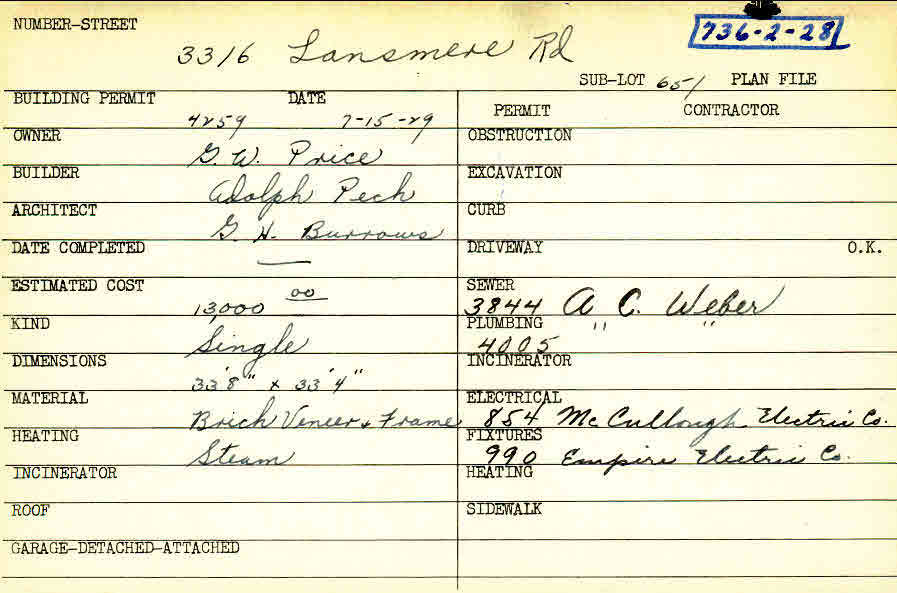 NUMBER-STREET
3316 Lansmere Rd
736-2-28
SUB-LOT 651 PLAN FILE
BUILDING PERMIT DATE
4259 7-15-29
PERMIT CONTRACTOR
OWNER
G. W. Price
OBSTRUCTION
BUILDER
Adolph Pech
EXCAVATION
ARCHITECT
G. H. Burrows
CURB
DATE COMPLETED
—
DRIVEWAY O.K.
ESTIMATED COST
13,000 00
SEWER
3844 A C. Weber
KIND
Single
PLUMBING " "
4005
DIMENSIONS
33'8" x 33'4"
INCINERATOR
MATERIAL
Brich Veneer & Frame
ELECTRICAL
854 McCullough Electric Co.
HEATING
Steam
FIXTURES
990 Empire Electric Co.
INCINERATOR
HEATING
ROOF
SIDEWALK
GARAGE-DETACHED-ATTACHED